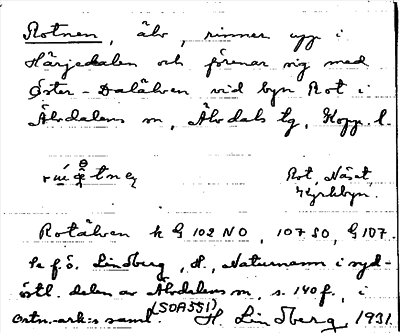 Rotnen, älv, rinner upp i
Härjedalen och förenar sig med
Öster-Dalälven vid byn Rot i
Älvdalens sn, Älvdals tg, Kopp. l.
Rot, Näset,
Kyrkbyn.
Rotälven k G 102 NO, 107 SO, G 107.
Se f. ö. Lindberg, H., Naturnamn i syd-
östl. delen av Älvdalens sn, s. 140 f., i
(SOÄ551)
ortn.-ark:s saml. H. Lindberg 1931.